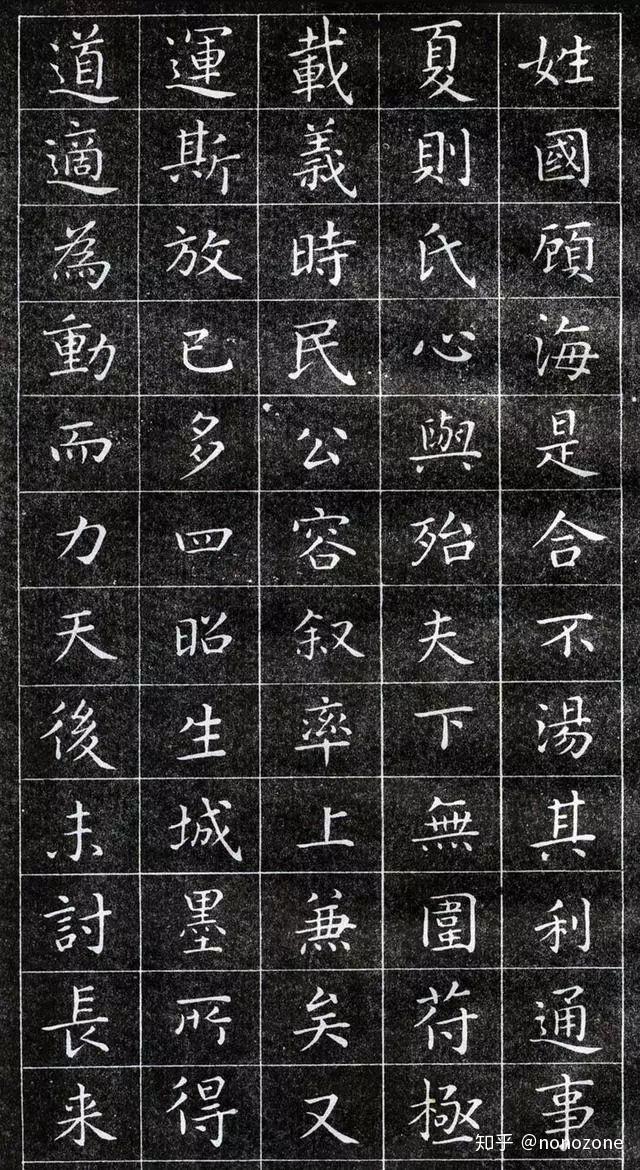 姓國顧海是合不湯其利通事
夏則氏心與殆夫下無圍苻極
載義時民公容叙率上兼矣又
運斯放已多四昭生城墨所得
道適為動而力天後未討長来
知乎 @nonozone